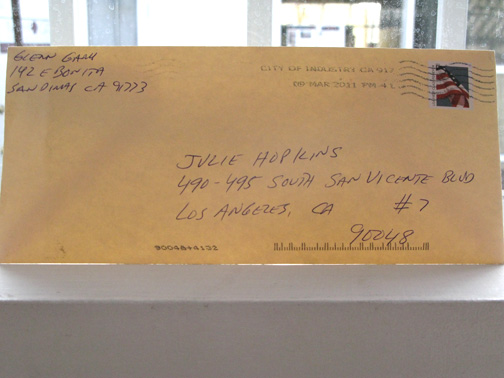 GLENN GARY
142 E BONITA
SAN DIMAS CA 91773
CITY OF INDUSTRY CA 917
09 MAR 2011 PM 4 L
JULIE HOPKINS
490-495 SOUTH SAN VICENTE BLVD
LOS ANGELES, CA #7
90048
90048+4132